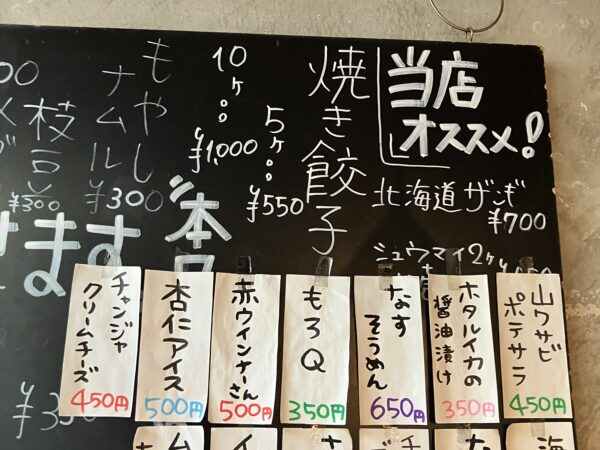 当店
オススメ!
焼き餃子
5ヶ…
¥550
10ヶ…
¥1,000
北海道ザンギ
¥700
シュウマイ2ヶ
もやし
ナムル
¥300
枝豆
¥300
ます
本日
山ワサビ
ポテサラ
450円
ホタルイカの
醤油漬け
350円
なす
そうめん
650円
もろQ
350円
赤ウインナーさん
500円
杏仁アイス
500円
チャンジャ
クリームチーズ
450円